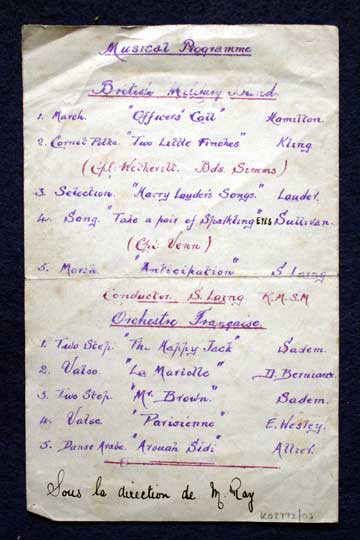 Musical Programme
British Military Band
1. March. "Officers' Call" Hamilton.
2. Cornet Polka "Two Little Finches" Kling
(Cpl. Wetherill. Bds. Simms)
3. Selection. "Harry Lauder's Songs." Lauder.
4. Song. "Take a pair of Sparkling EYES" Sullivan.
(Cpl Venn)
5. March "Anticipation" S Laing
Conductor S. Laing R.M.S.M
Orchestre Française.
1. Two Step. "The Happy Jack" Sadem.
2. Valse. "La Mariotte"
3. Two Step "Mr. Brown." Sadem.
4. Valse "Parisienne" E. Wesley.
5. Danse Arabe. "Arouah Sidi"
Sous la direction de M. Ray